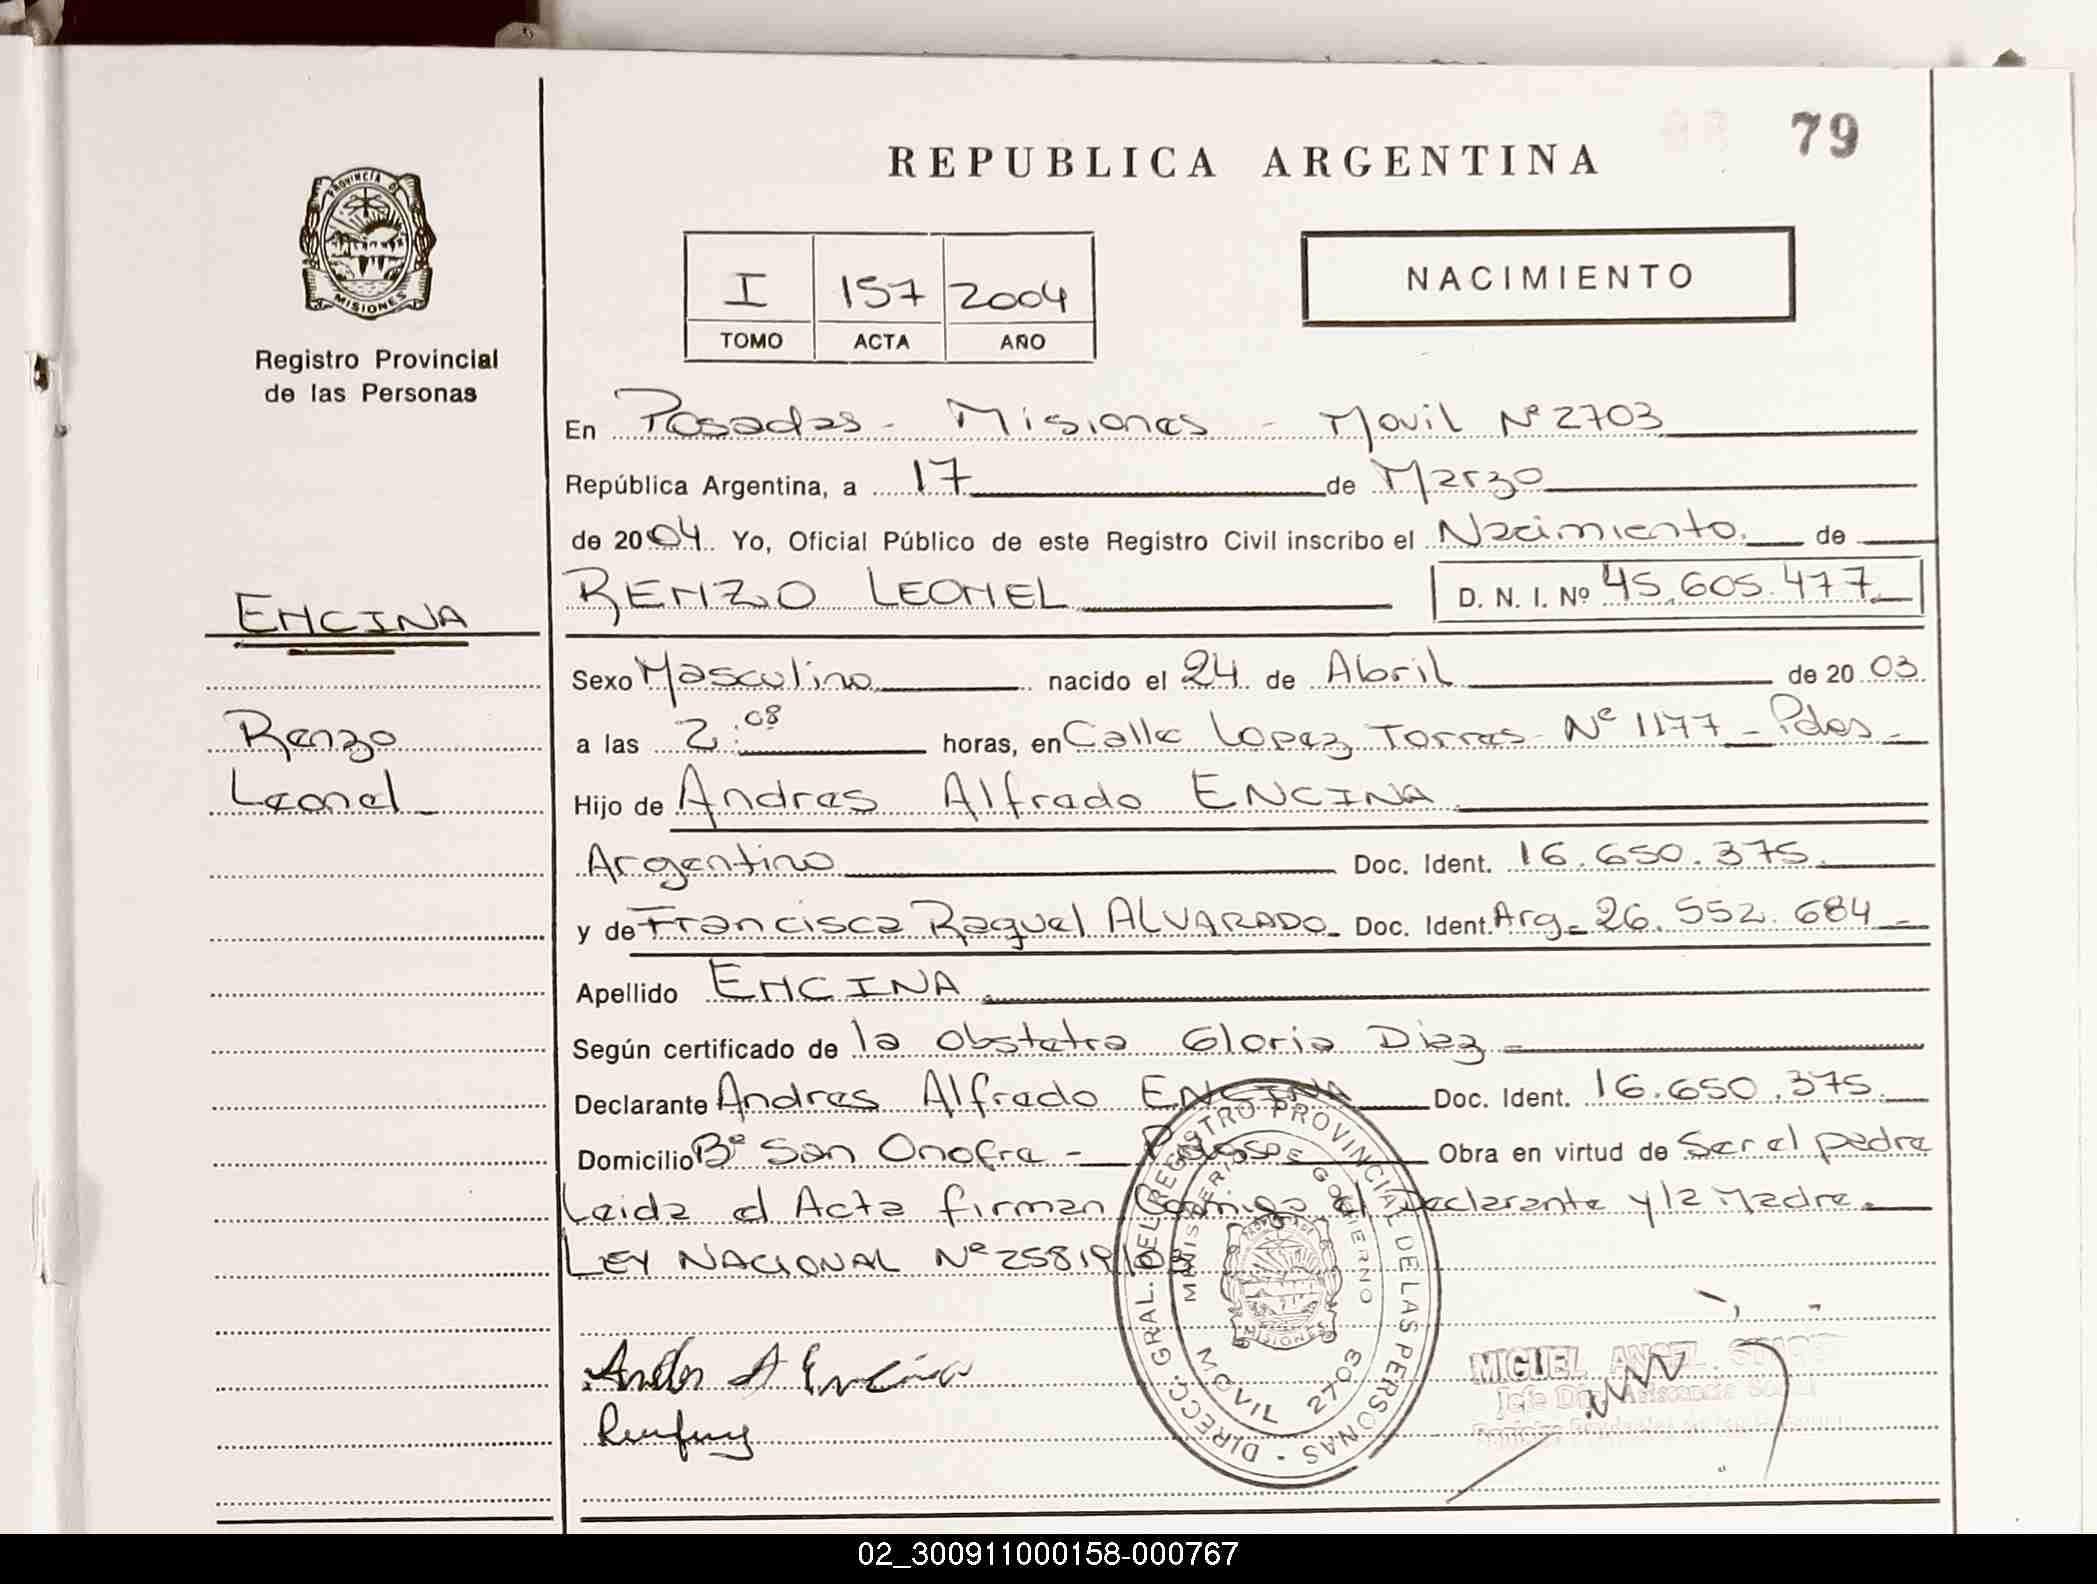 79
REPUBLICA ARGENTINA
PROVINCIA DE
MISIONES
I 157 2004
TOMO ACTA AÑO
NACIMIENTO
Registro Provincial
de las Personas
En Posadas - Misiones - Movil Nº 2703
República Argentina, a 17 de Marzo
de 2004. Yo, Oficial Público de este Registro Civil inscribo el Nacimiento. de
ENCINA
RENZO LEONEL D. N. I. Nº 45.605.477
Sexo Masculino nacido el 24 de Abril de 2003
Renzo
a las 2:08 horas, en Calle Lopez Torres Nº 1177 - Pdas -
Leonel
Hijo de Andres Alfredo ENCINA
Argentino Doc. Ident. 16.650.375.
y de Francisca Raquel ALVARADO Doc. Ident. Arg- 26.552.684 -
Apellido ENCINA
Según certificado de la obstetra Gloria Diaz
Declarante Andres Alfredo ENCINA Doc. Ident. 16.650.375.
Domicilio Bº San Onofre - Pdas Obra en virtud de Ser el padre
Leida el Acta firman Conmigo el Declarante y la Madre.
LEY NACIONAL Nº 25819/03
DIRECC. GRAL. DEL REGISTRO PROVINCIAL DE LAS PERSONAS
MINISTERIO DE GOBIERNO
MISIONES
MOVIL 2703
Andres A Encina
MIGUEL ANGEL
Jefe Dto. Asistencia Social
02_300911000158-000767